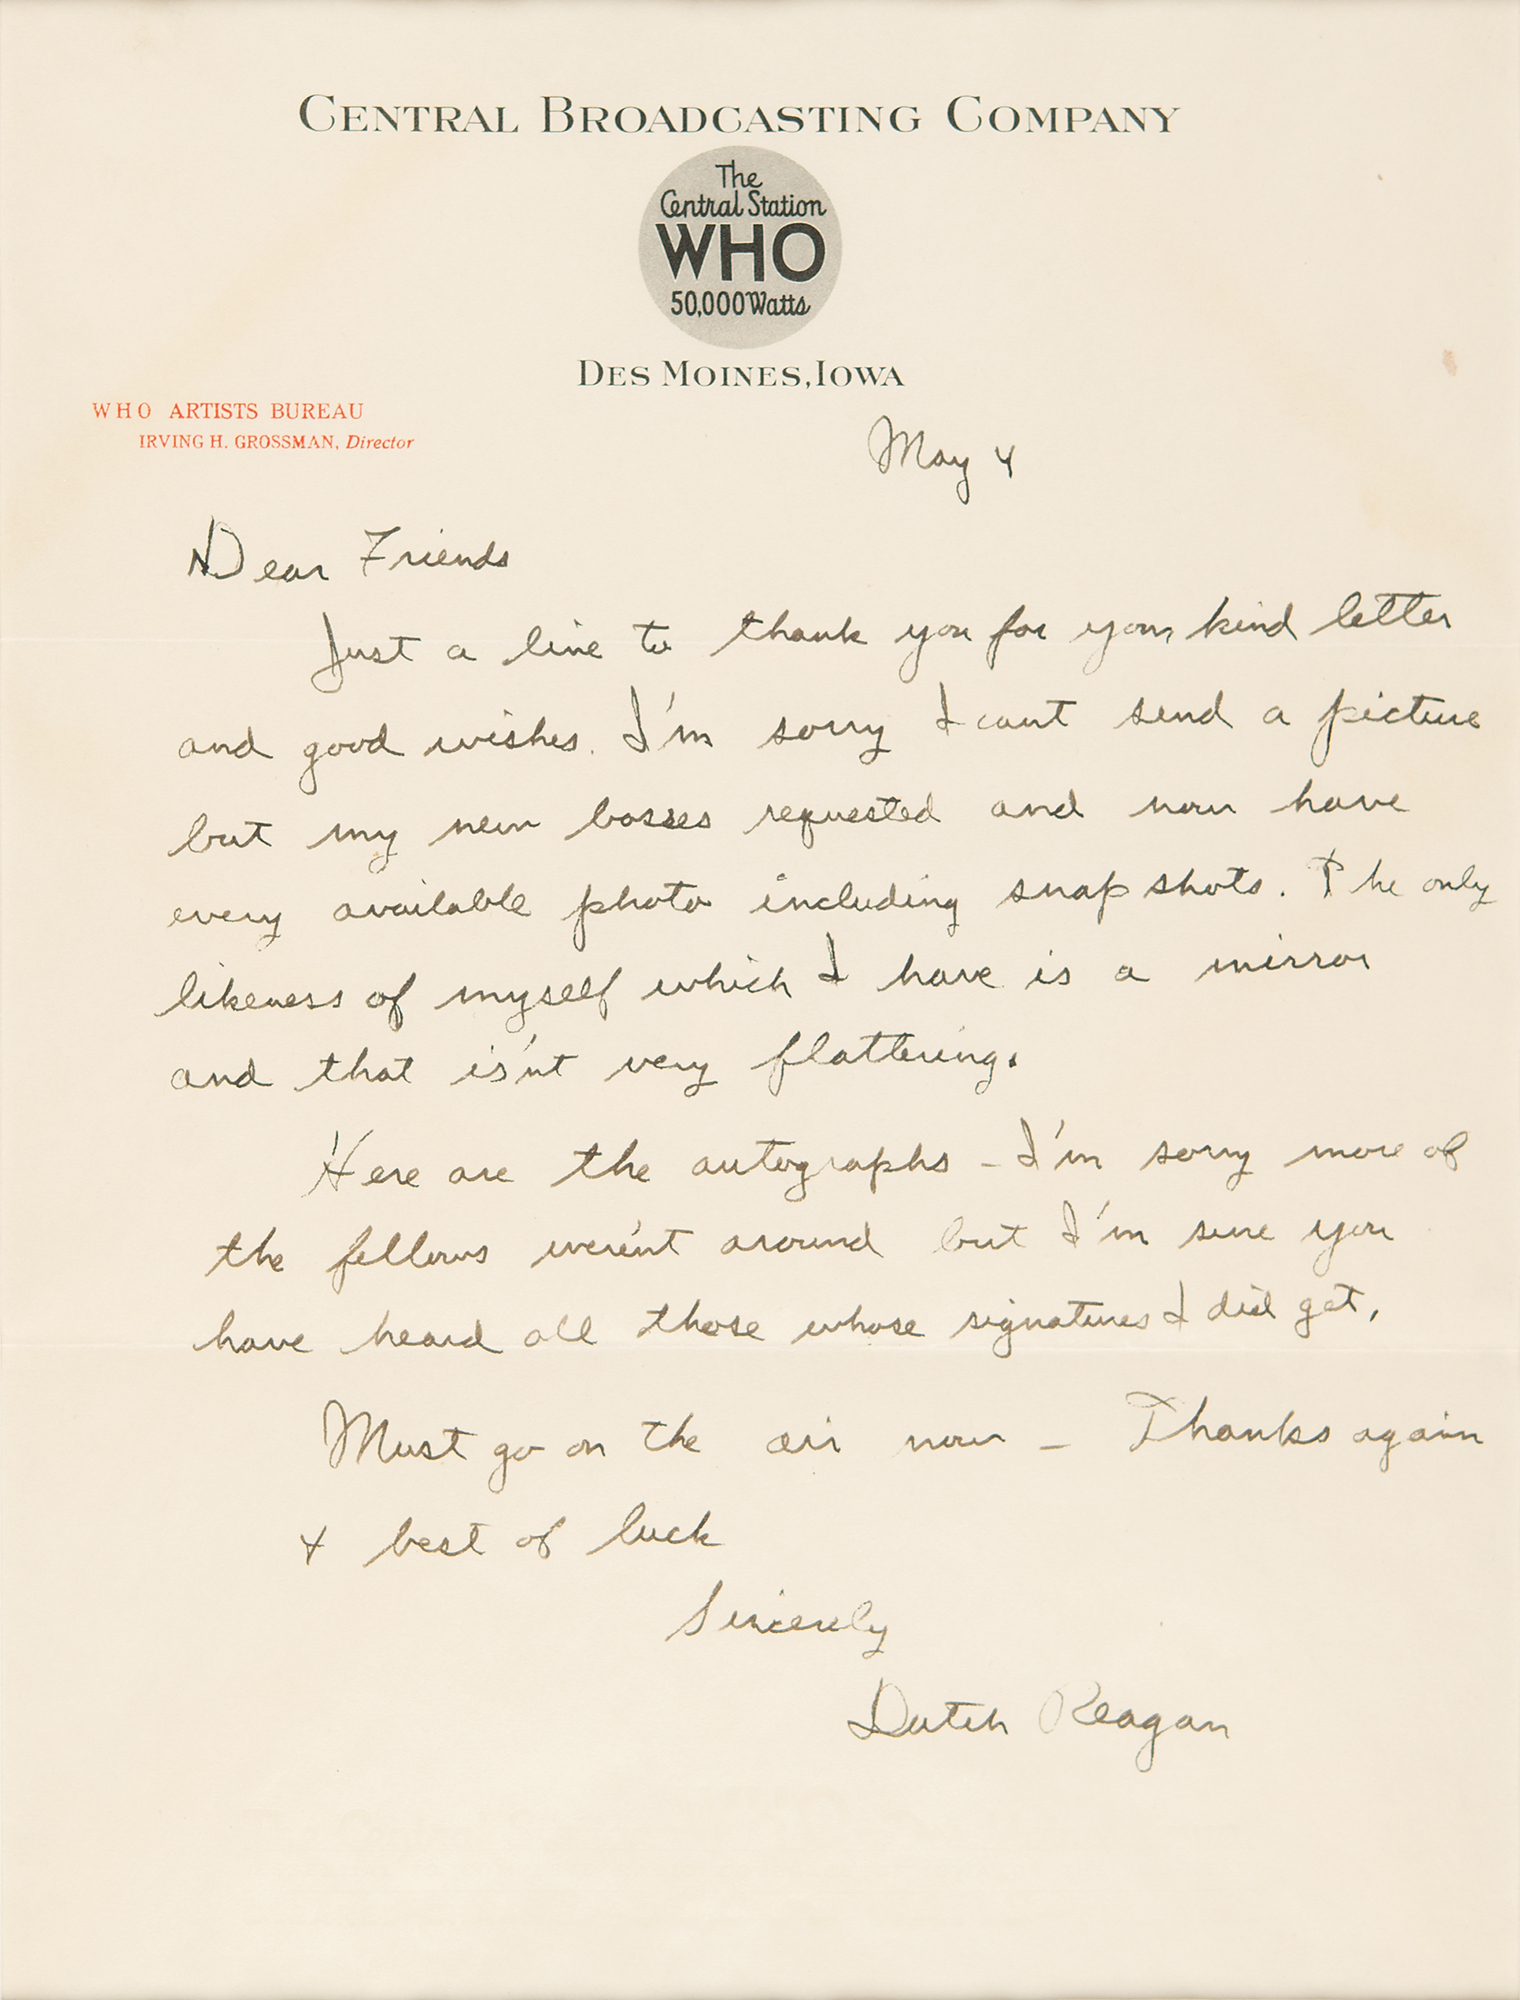 CENTRAL BROADCASTING COMPANY
The
Central Station
WHO
50,000 Watts
DES MOINES, IOWA
WHO ARTISTS BUREAU
IRVING H. GROSSMAN, Director
May 4
Dear Friends
Just a line to thank you for your kind letter
and good wishes. I'm sorry I cant send a picture
but my new bosses requested and now have
every available photo including snap shots. The only
likeness of myself which I have is a mirror
and that is'nt very flattering.
Here are the autographs – I'm sorry more of
the fellows were'nt around but I'm sure you
have heard all those whose signatures I did get.
Must go on the air now – Thanks again
+ best of luck
Sincerely
Dutch Reagan